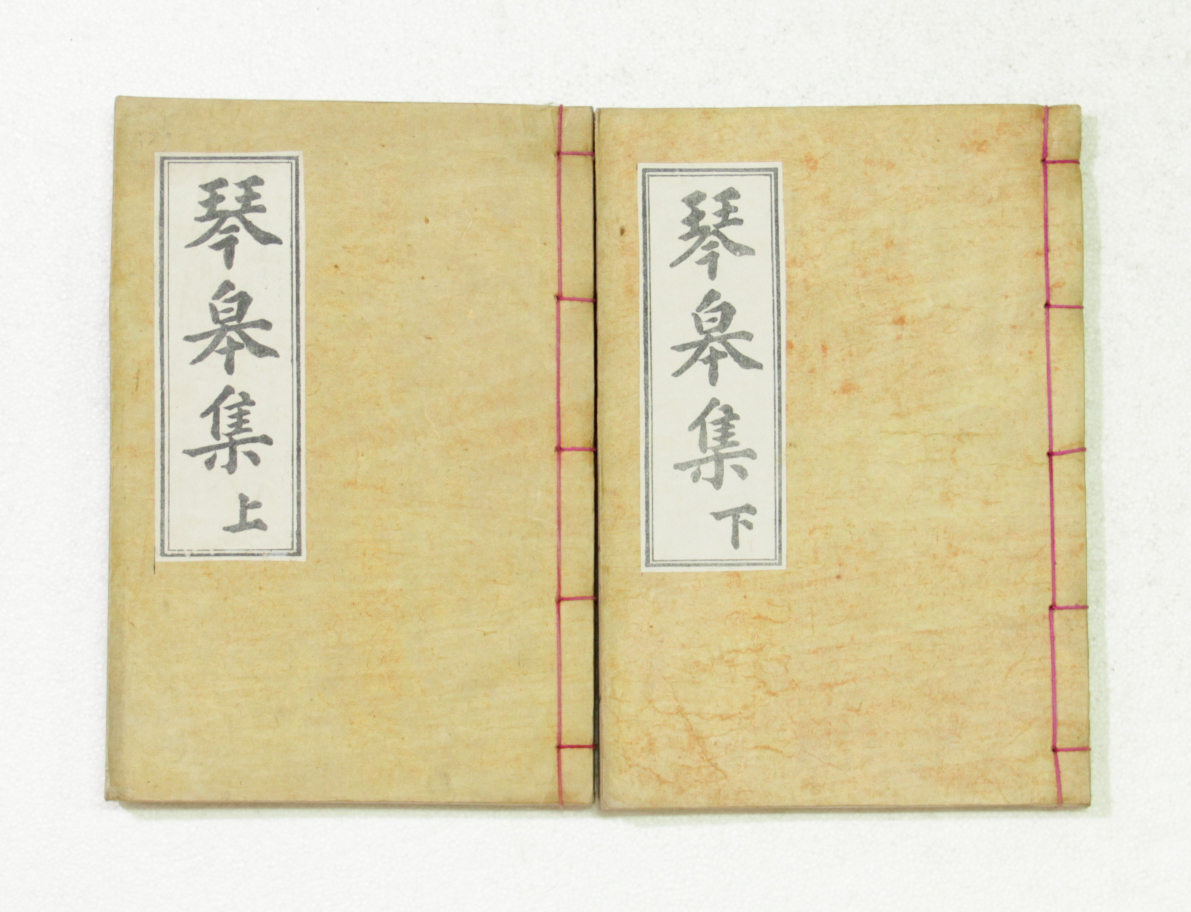 琴皋集上
琴皋集下